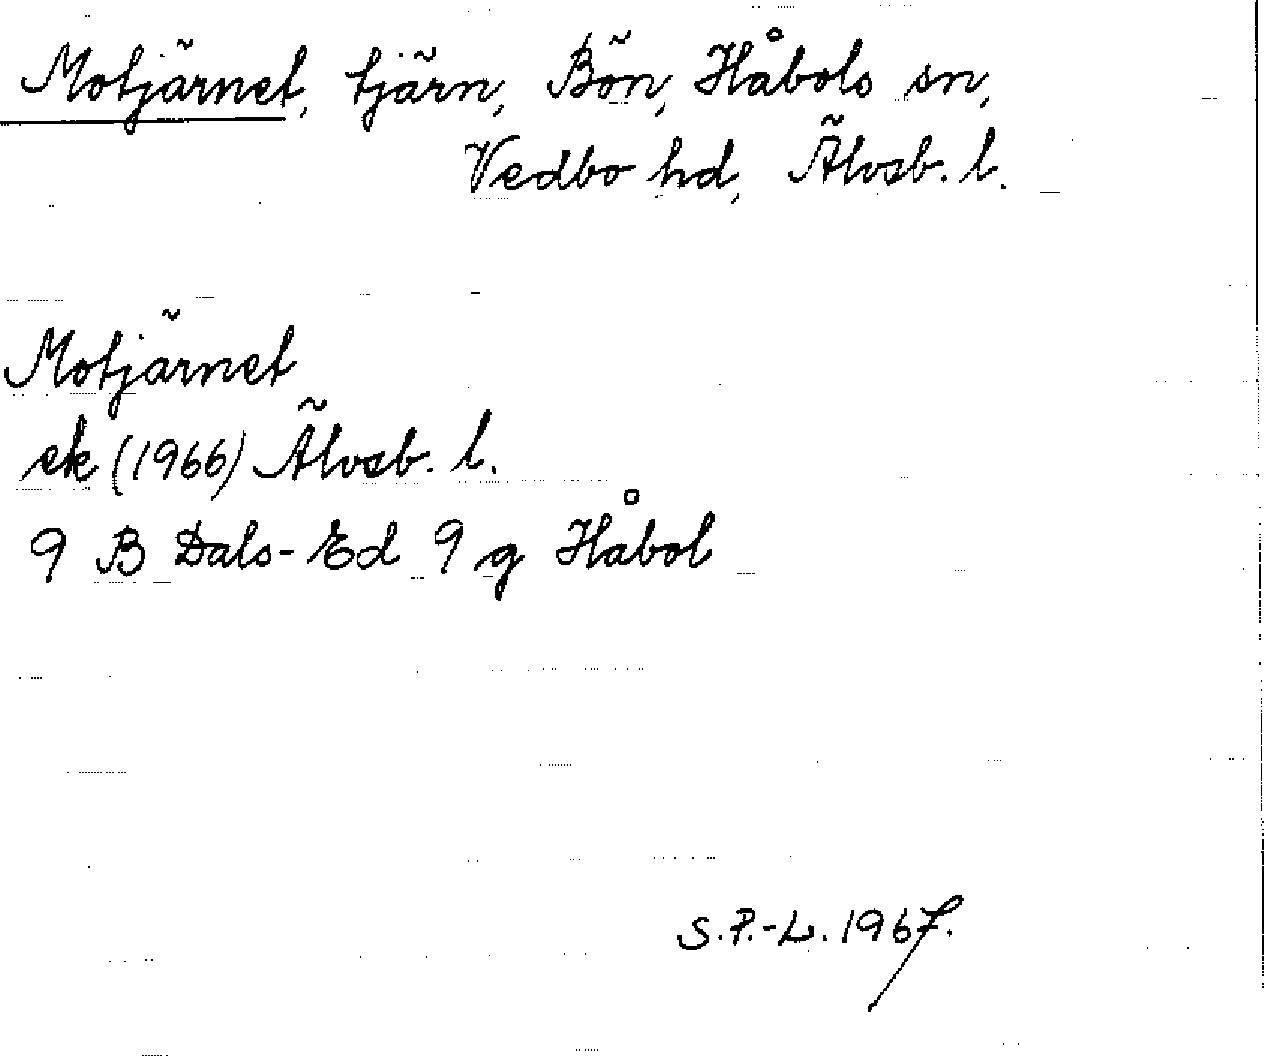 Motjärnet, tjärn, Bön, Håbols sn,
Vedbo hd, Älvsb. l.
Motjärnet
ek (1966) Älvsb. l.
9 B Dals-Ed 9 g Håbol
S.P.-L. 1967.